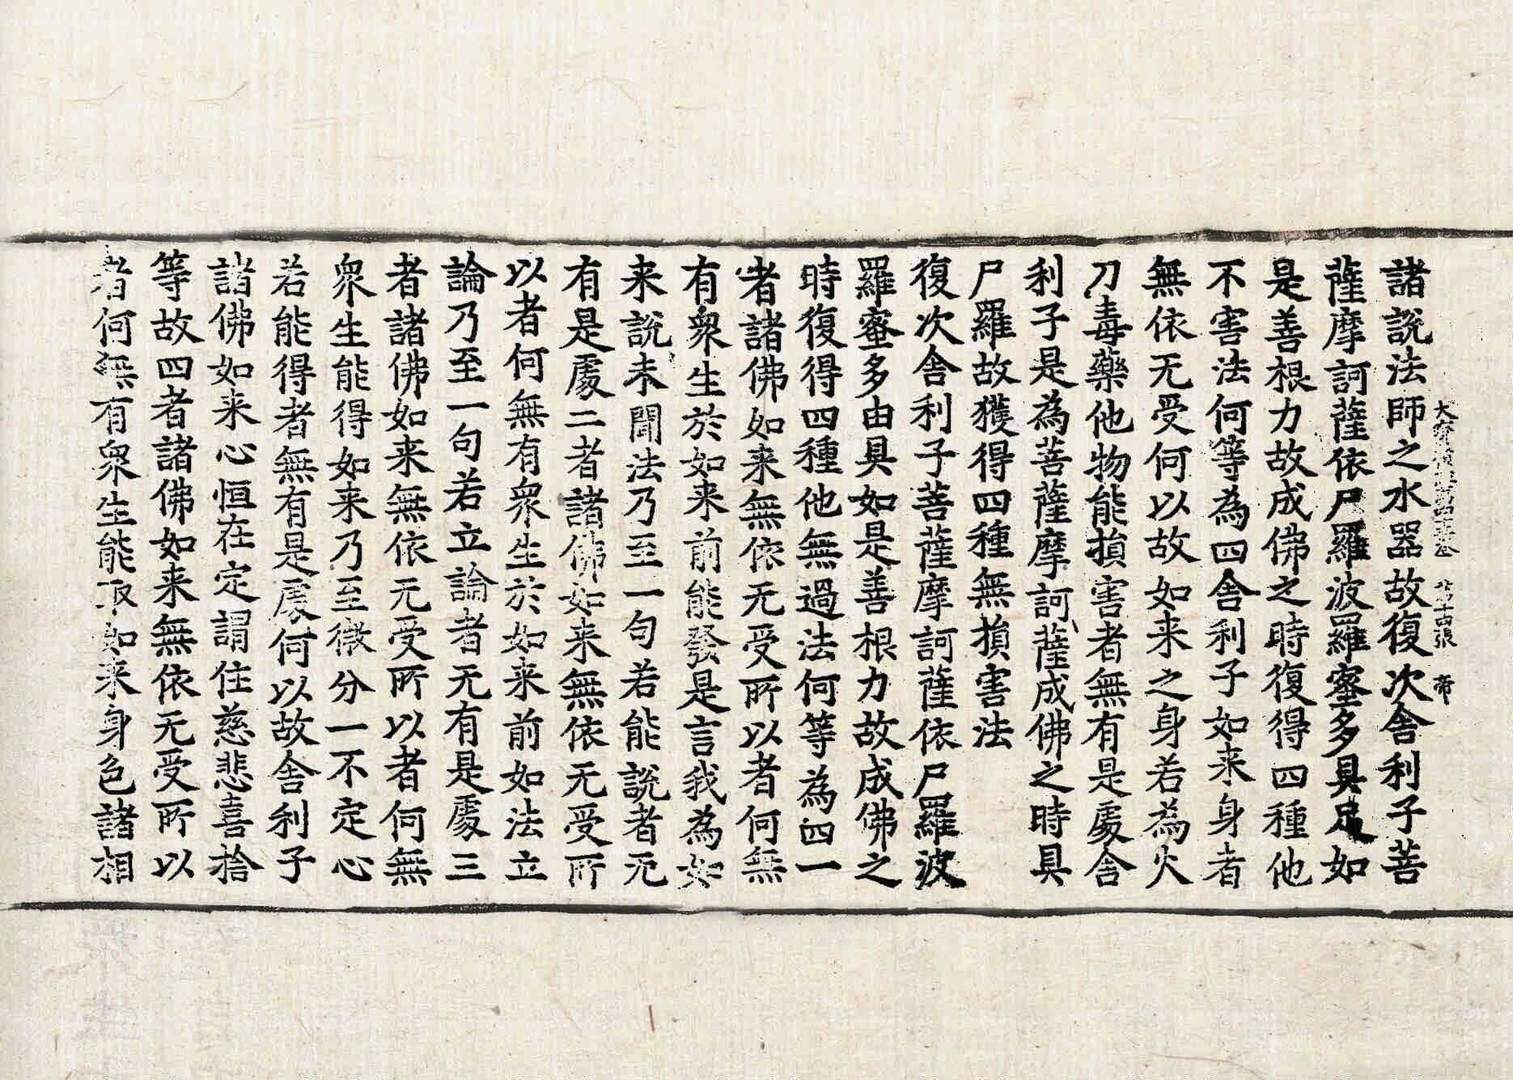 諸說法師之水器故復次舍利子菩
薩摩訶薩依尸羅波羅蜜多具足如
是善根力故成佛之時復得四種他
不害法何等為四舍利子如来身者
無依无受何以故如来之身若為火
刀毒藥他物能損害者無有是處舍
利子是為菩薩摩訶薩成佛之時具
尸羅故獲得四種無損害法
復次舍利子菩薩摩訶薩依尸羅波
羅蜜多由具如是善根力故成佛之
時復得四種他無過法何等為四一
者諸佛如来無依无受所以者何無
有衆生於如来前能發是言我為如
来說未聞法乃至一句若能說者无
有是處二者諸佛如来無依无受所
以者何無有衆生於如来前如法立
論乃至一句若立論者无有是處三
者諸佛如来無依无受所以者何無
衆生能得如来乃至微分一不定心
若能得者無有是處何以故舍利子
諸佛如来心恒在定謂住慈悲喜捨
等故四者諸佛如来無依无受所以
者何無有衆生能取如来身色諸相